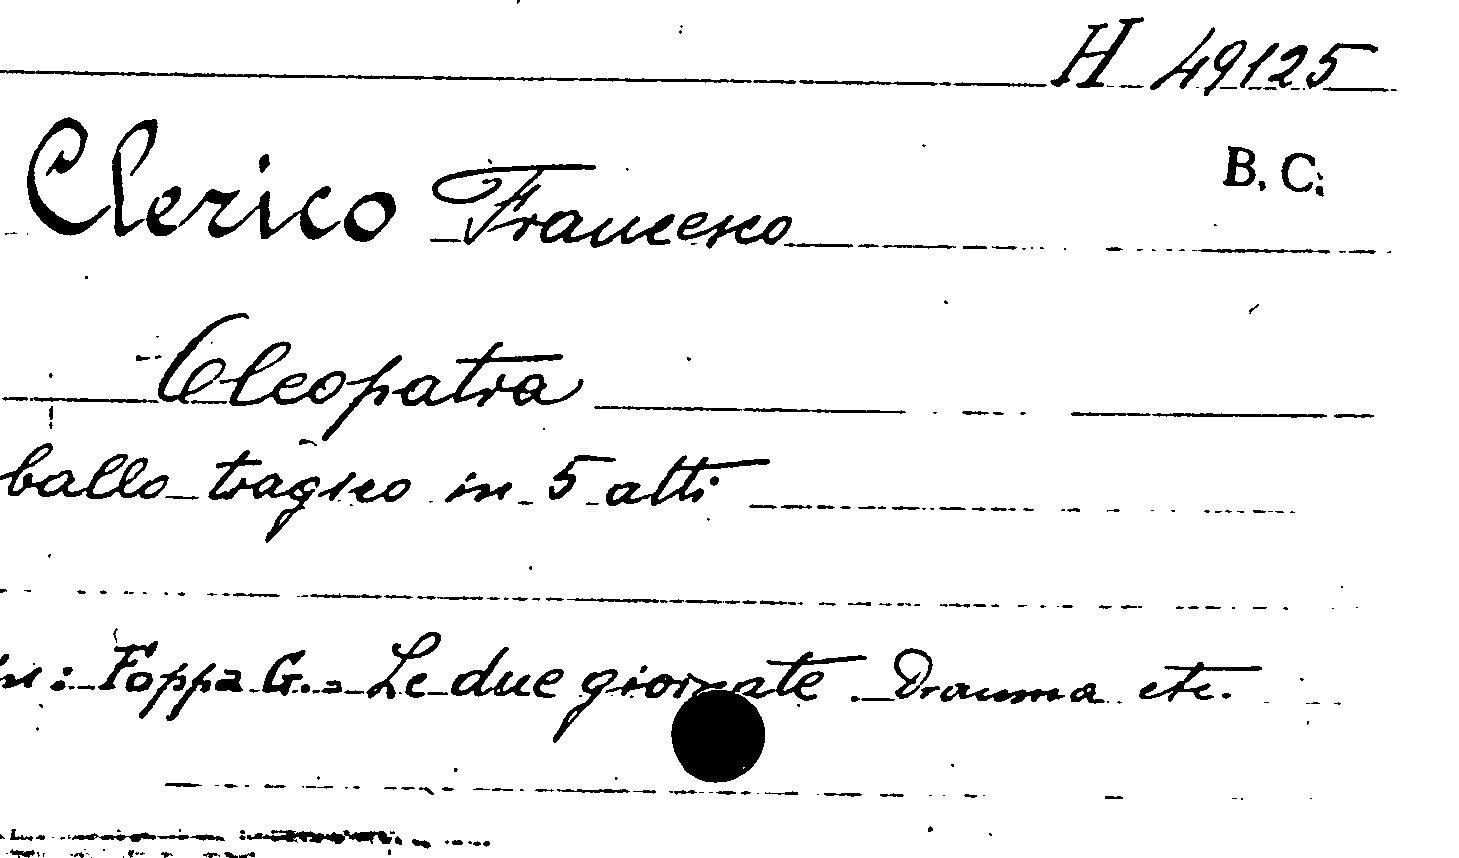 H 49125
B. C.
Clerico Francesco
Cleopatra
ballo tragico in 5 atti
in: Foppa G. = Le due giornate. Dramma etc.